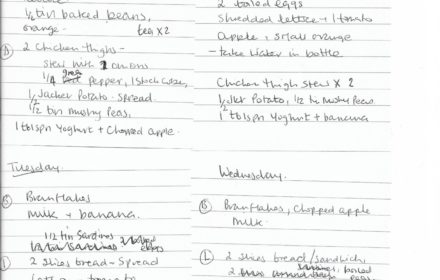 1/2 tin baked beans,
orange. tea x 2
(D) 2 Chicken thighs -
Stew with 2 onions
1/4 green pepper, 1 stock cube,
1/2 Jacket Potato - Spread
1/2 tin mushy Peas,
1 tblspn Yoghurt + Chopped apple.
Tuesday
(B) Branflakes
Milk + banana.
1/2 tin Sardines
2 slices bread - Spread
2 boiled eggs
Shredded lettuce + 1 tomato
Apple, small orange
- in bottle
Chicken thigh stew x 2
1/2 Jkt Potato, 1/2 tin Mushy Peas
1 tblspn Yoghurt + banana
Wednesday.
(B) Branflakes, Chopped apple
Milk.
(L) 2 slices bread/sandwich